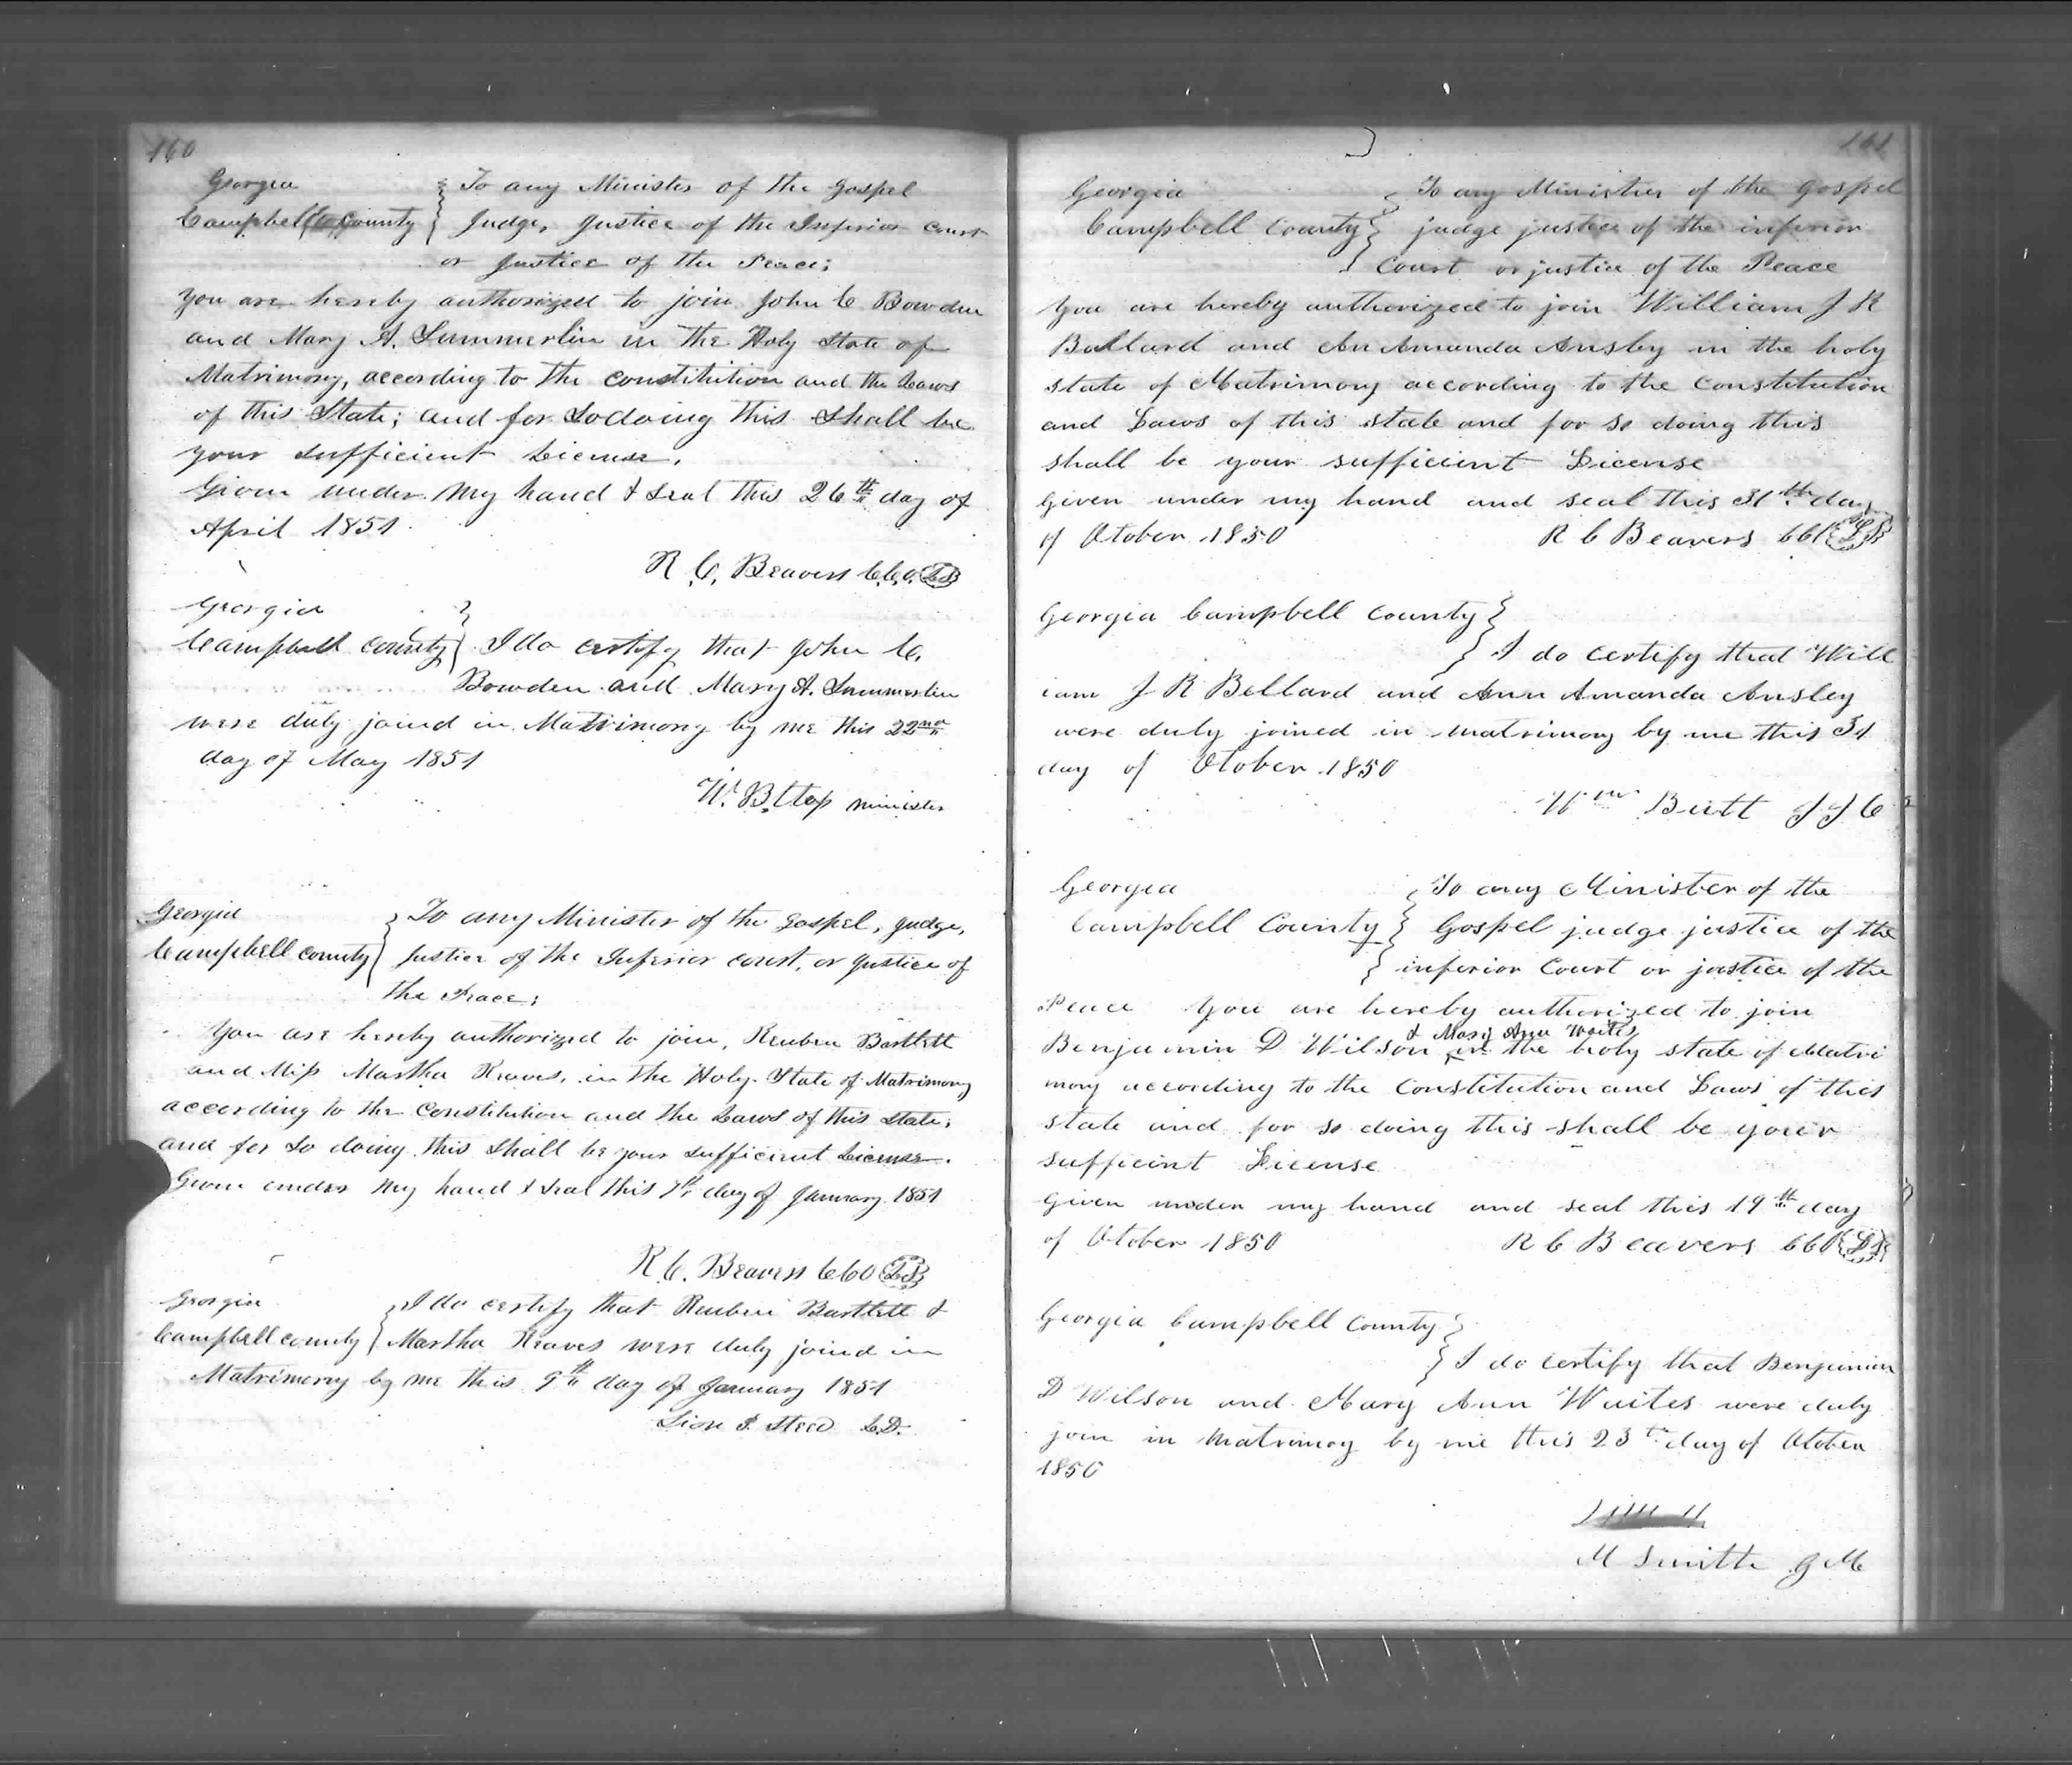 160
Georgia
Campbell County
To any Minister of the Gospel
Judge, Justice of the Inferior Court
or Justice of the Peace;
You are hereby authorized to join John C Bowden
and Mary A. Summerlin in the Holy State of
Matrimony, according to the constitution and the Laws
of this State; and for So doing this Shall be
your Sufficient License.
Given under my hand & Seal this 26th day of
April 1851
R. C. Beavers C.C.O. LS
Georgia
Campbell county I do certify that John C.
Bowden and Mary A. Summerlin
were duly joined in Matrimony by me this 22nd
day of May 1851
minister
Georgia
Campbell county
To any Minister of the Gospel, Judge,
Justice of the Inferior court, or Justice of
the Peace;
You are hereby authorized to join, Reuben Bartlett
and Miss Martha Reaves, in the Holy State of Matrimony
according to the constitution and the Laws of this State;
and for So doing this Shall be your Sufficient License.
Given under my hand & Seal this 7th day of January 1851
R. C. Beavers CCO LS
Georgia
Campbell county
I do certify that Reuben Bartlett &
Martha Reaves were duly joined in
Matrimony by me this 9th day of January 1851
Steed
161
Georgia
Campbell County
To any Minister of the Gospel
judge justice of the inferior
Court or justice of the Peace
You are hereby authorized to join William J R
Ballard and An Amanda Ansley in the holy
state of Matrimony according to the Constitution
and Laws of this state and for so doing this
shall be your sufficient License
Given under my hand and seal this 31th day
of Otober 1850 R C Beavers CCO LS
Georgia Campbell County
I do certify that Will
iam J R Bellard and Ann Amanda Ansley
were duly joined in matrimony by me this 31
day of Otober 1850
Wm Butt J J C
Georgia
Campbell County
To any Minister of the
Gospel judge justice of the
inferior Court or justice of the
Peace You are hereby authorized to join
& Mary Ann Waites
Benjamin D Wilson in the holy state of Matri
mony according to the Constitution and Laws of this
state and for so doing this shall be your
sufficint License
Given under my hand and seal this 19th day
of Otober 1850 R C Beavers CCO LS
Georgia Campbell County
I do certify that Benjamin
D Wilson and Mary Ann Waites were duly
join in matrimoy by me this 23th day of Otober
1850
M Smith